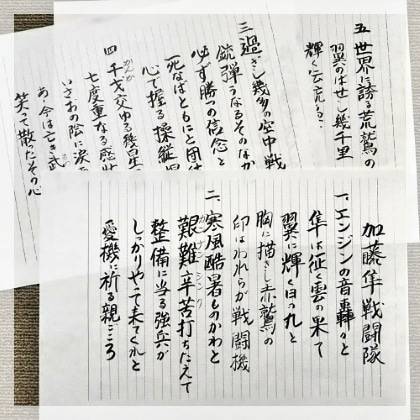 加藤隼戦闘隊
一、エンジンの音轟々と
隼は征く雲の果て
翼に輝く日の丸と
胸に描きし赤鷲の
印はわれらが戦闘機
二、寒風酷暑ものかわと
艱難辛苦打ちたえて
整備に当る強兵が
しっかりやって来てくれと
愛機に祈る親ごころ
五 世界に誇る荒鷲の
翼のばせし幾千里
輝く
三 過ぎし幾多の空中戦
銃弾うなるそのなか
必ず勝つの信念と
死なばともにと団
心で握る操縦
四 千戈交ゆる幾星
七度重なる感状
いさおの陰に涙
あゝ今は亡き武
笑って散ったその心